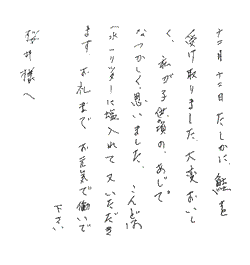 十二月十二日 たしかに、鮭を
受け取りました。大変おいし
く、私が子供の頃の、あじで。
なつかしく思いました。こんどは
塩入れて又いただき
ます お礼まで お元気で働いて
下さい
様へ